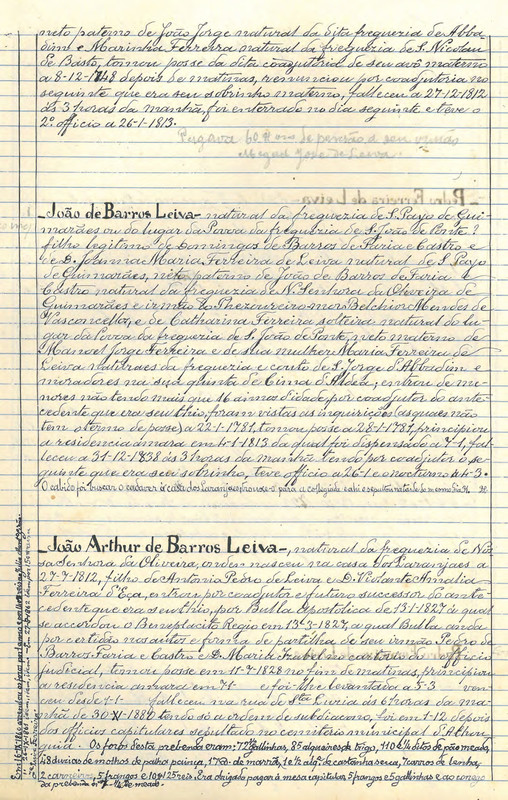 neto paterno de João Jorge natural da dita freguezia de Abba
dim e Marinha Ferreira natural da freguezia de S. Nicolau
de Basto, tomou posse da dita coadjutoria de seu avô materno
a 8-12-1748 depois de matinas, renunciou por coadjutoria no
seguinte que era seu sobrinho materno, falleceu a 27-12-1812
ás 3 horas da manhã, foi enterrado no dia seguinte e teve o
2º officio a 26-1-1813.
Pagava 60$ de pensão a seu irmão
Miguel José de Leiva
João de Barros Leiva- natural da freguezia de S. Payo de Gui-
marães ou do lugar da Povoa da freguezia de S. João de Ponte?
filho legitimo de Domingos de Barros de Faria e Castro e
de D. Joanna Maria Ferreira de Leiva natural de S. Payo
de Guimarães, neto paterno de João de Barros de Faria e
Castro natural da freguezia de N. Senhora da Oliveira de
Guimarães e irmão do Thezoureiro mór Belchior Mendes de
Vasconcellos, e de Catharina Ferreira solteira natural do lu-
gar da Povoa da freguezia de S. João de Ponte, neto materno de
Manoel Jorge Ferreira e de sua mulher Maria Ferreira de
Leiva naturaes da freguezia e couto de S. Jorge d'Abbadim e
moradores na sua quinta de Cima d'Aldêa; entrou de me-
nores não tendo mais que 16 annos d'idade, por coadjutor do ante-
cedente que era seu thio, foram vistas as inquirições (as quaes não
tem o termo de posse) a 22-1-1781, tomou posse a 28-1-1781, principiou
a residencia amara em 1-1-1813 da qual foi dispensado a 7-1, fal-
leceu a 31-12-1838 ás 3 horas da manhã tendo por coadjutor o se-
guinte que era seu sobrinho, teve officio a 26-1 e o nocturno a 4-3.
O cabido foi buscar o cadaver á casa dos Laranjaes, trouxe-o para a collegiada e ahi
João Arthur de Barros Leiva-, natural da freguezia de Nos
sa Senhora da Oliveira, onde nasceu na casa dos Laranjaes a
27-7-1812, filho de Antonio Pedro de Leiva e D. Violante Amalia
Ferreira d'Eça, entrou por coadjutor e futuro successor do ante-
cedente que era seu thio, por Bulla Apostolica de 13-1-1827 á qual
se accordou o Beneplacito Regio em 13-3-1827, a qual Bulla anda
por certidão nos autos e forma de partilha de seu irmão Pedro de
Barros Faria e Castro e D. Maria Izabel no cartorio do officio
judicial, tomou posse em 11-7-1828 no fim de matinas, principiou
a residencia amara em 7-1 e foi-lhe levantada a 5-3 ven-
ceu desde 1-1 falleceu na rua de Stª Luzia ás 6 horas da ma-
nhã de 30-XI-1880 tendo só a ordem de subdiacono, foi em 1-12 depois
dos officios capitulares sepultado no cemiterio municipal d'Athou-
guia. Os foros desta prebenda eram: 72 gallinhas, 85 alqueires de trigo, 110 e ¼ ditos de pão meado,
48 duzias de molhos de palha painça, de marrã, 1 e ½ alq. de castanha secca, 7 carros de lenha,
2 carneiros, 5 frangos e reis. Era obrigado pagar á mesa capitular 5 frangos e 5 gallinhas e ao conego
da prebenda de meado.